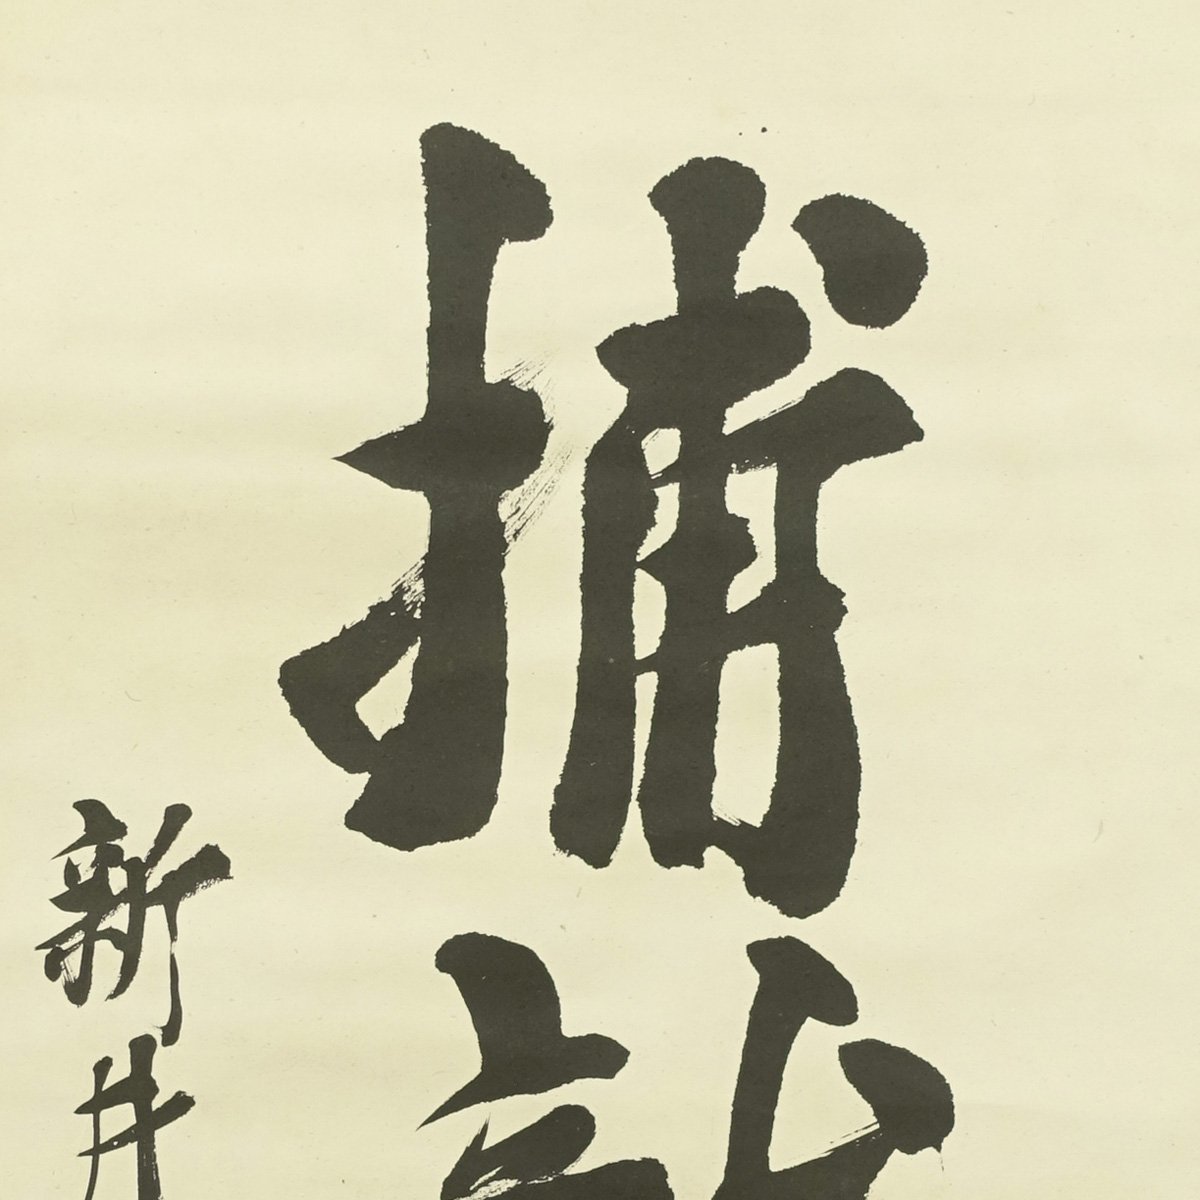 捕
新井